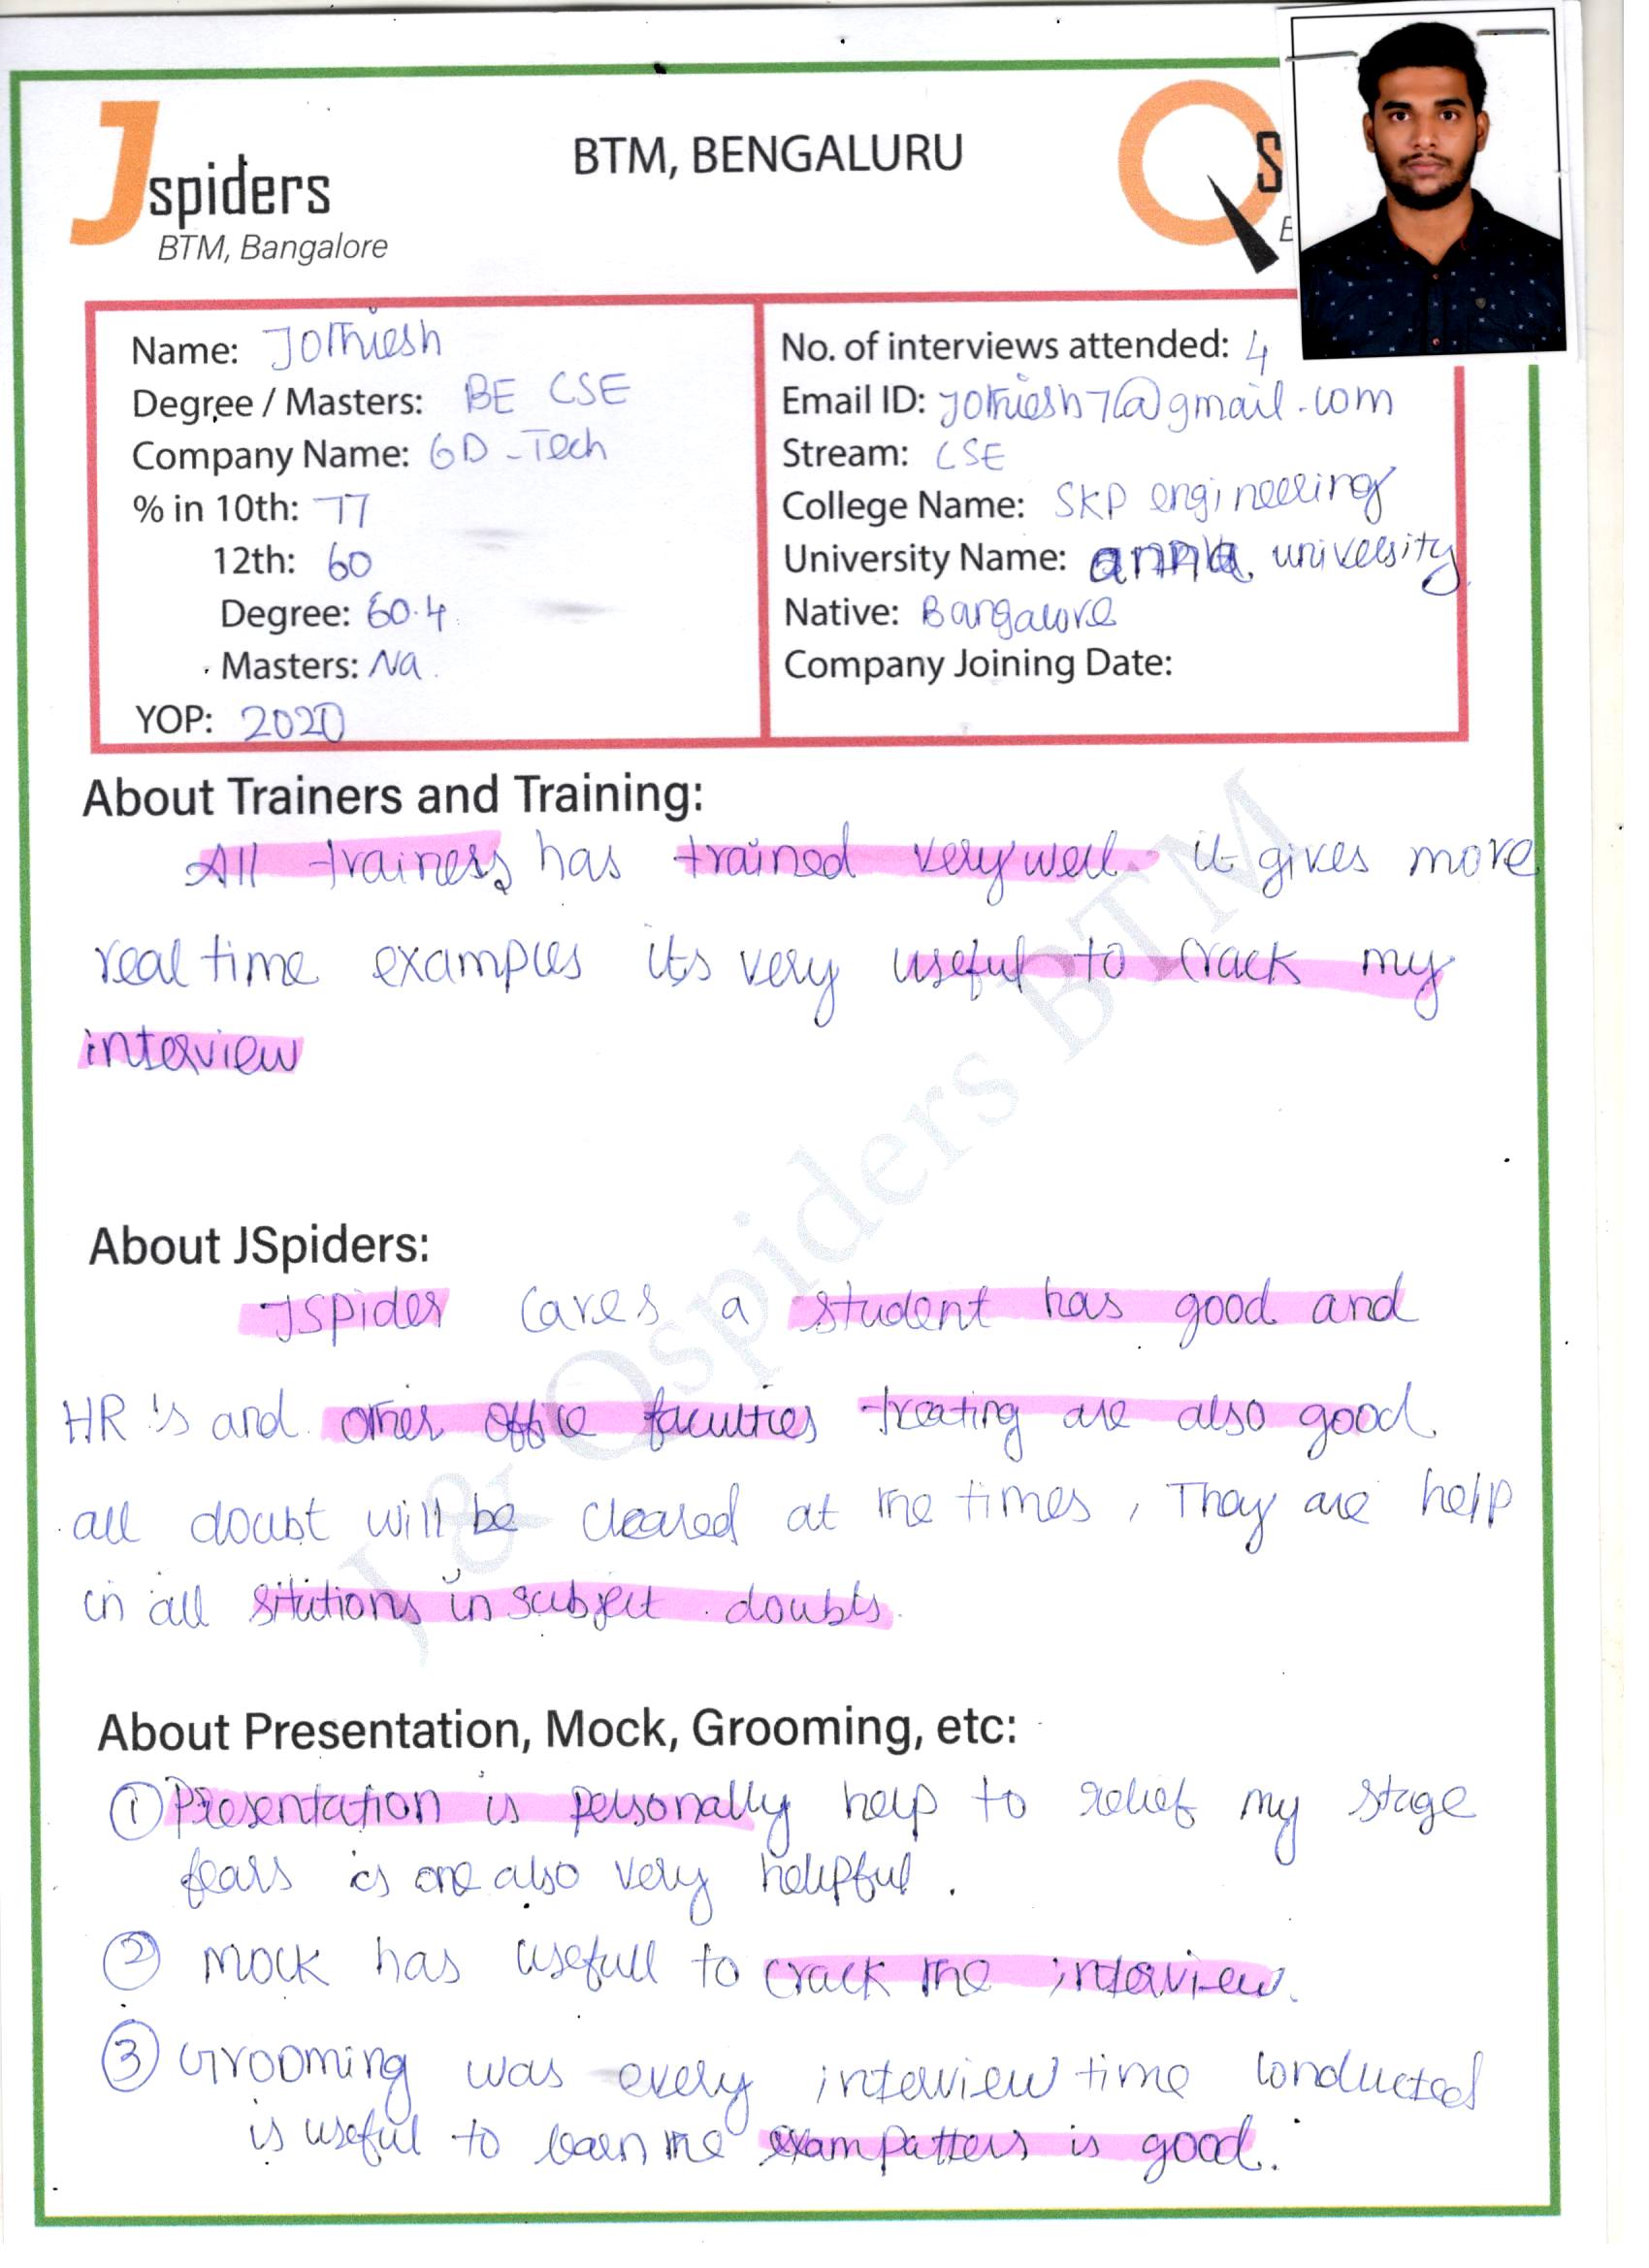 Jspiders
BTM, Bangalore
BTM, BENGALURU
S
Name: Jothiesh
Degree / Masters: BE CSE
Company Name: GD-Tech
% in 10th: 77
12th: 60
Degree: 60.4
Masters: Na.
YOP: 2020
No. of interviews attended: 4
Email ID: jothiesh7@gmail.com
Stream: CSE
College Name: SKP engineering
University Name: anna university
Native: Bangalore
Company Joining Date:
About Trainers and Training:
All trainers has trained very well. it gives more
real time examples its very useful to crack my
interview
About JSpiders:
JSpider cares a student has good and
HR's and other office faculties treating are also good.
all doubt will be cleared at the times, They are help
in all sitiutions in subject doubts.
About Presentation, Mock, Grooming, etc:
① Presentation is personally help to relief my stage
fears is one also very helpful.
② Mock has usefull to crack the interview.
③ Grooming was every interview time conducted
is useful to learn the exam patters is good.
J & Qspiders BTM